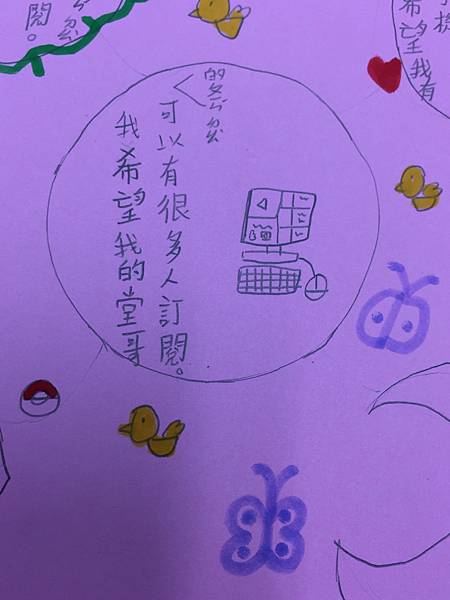 閱。
希望我有
我希望我的堂哥
的
可以有很多人訂閱。